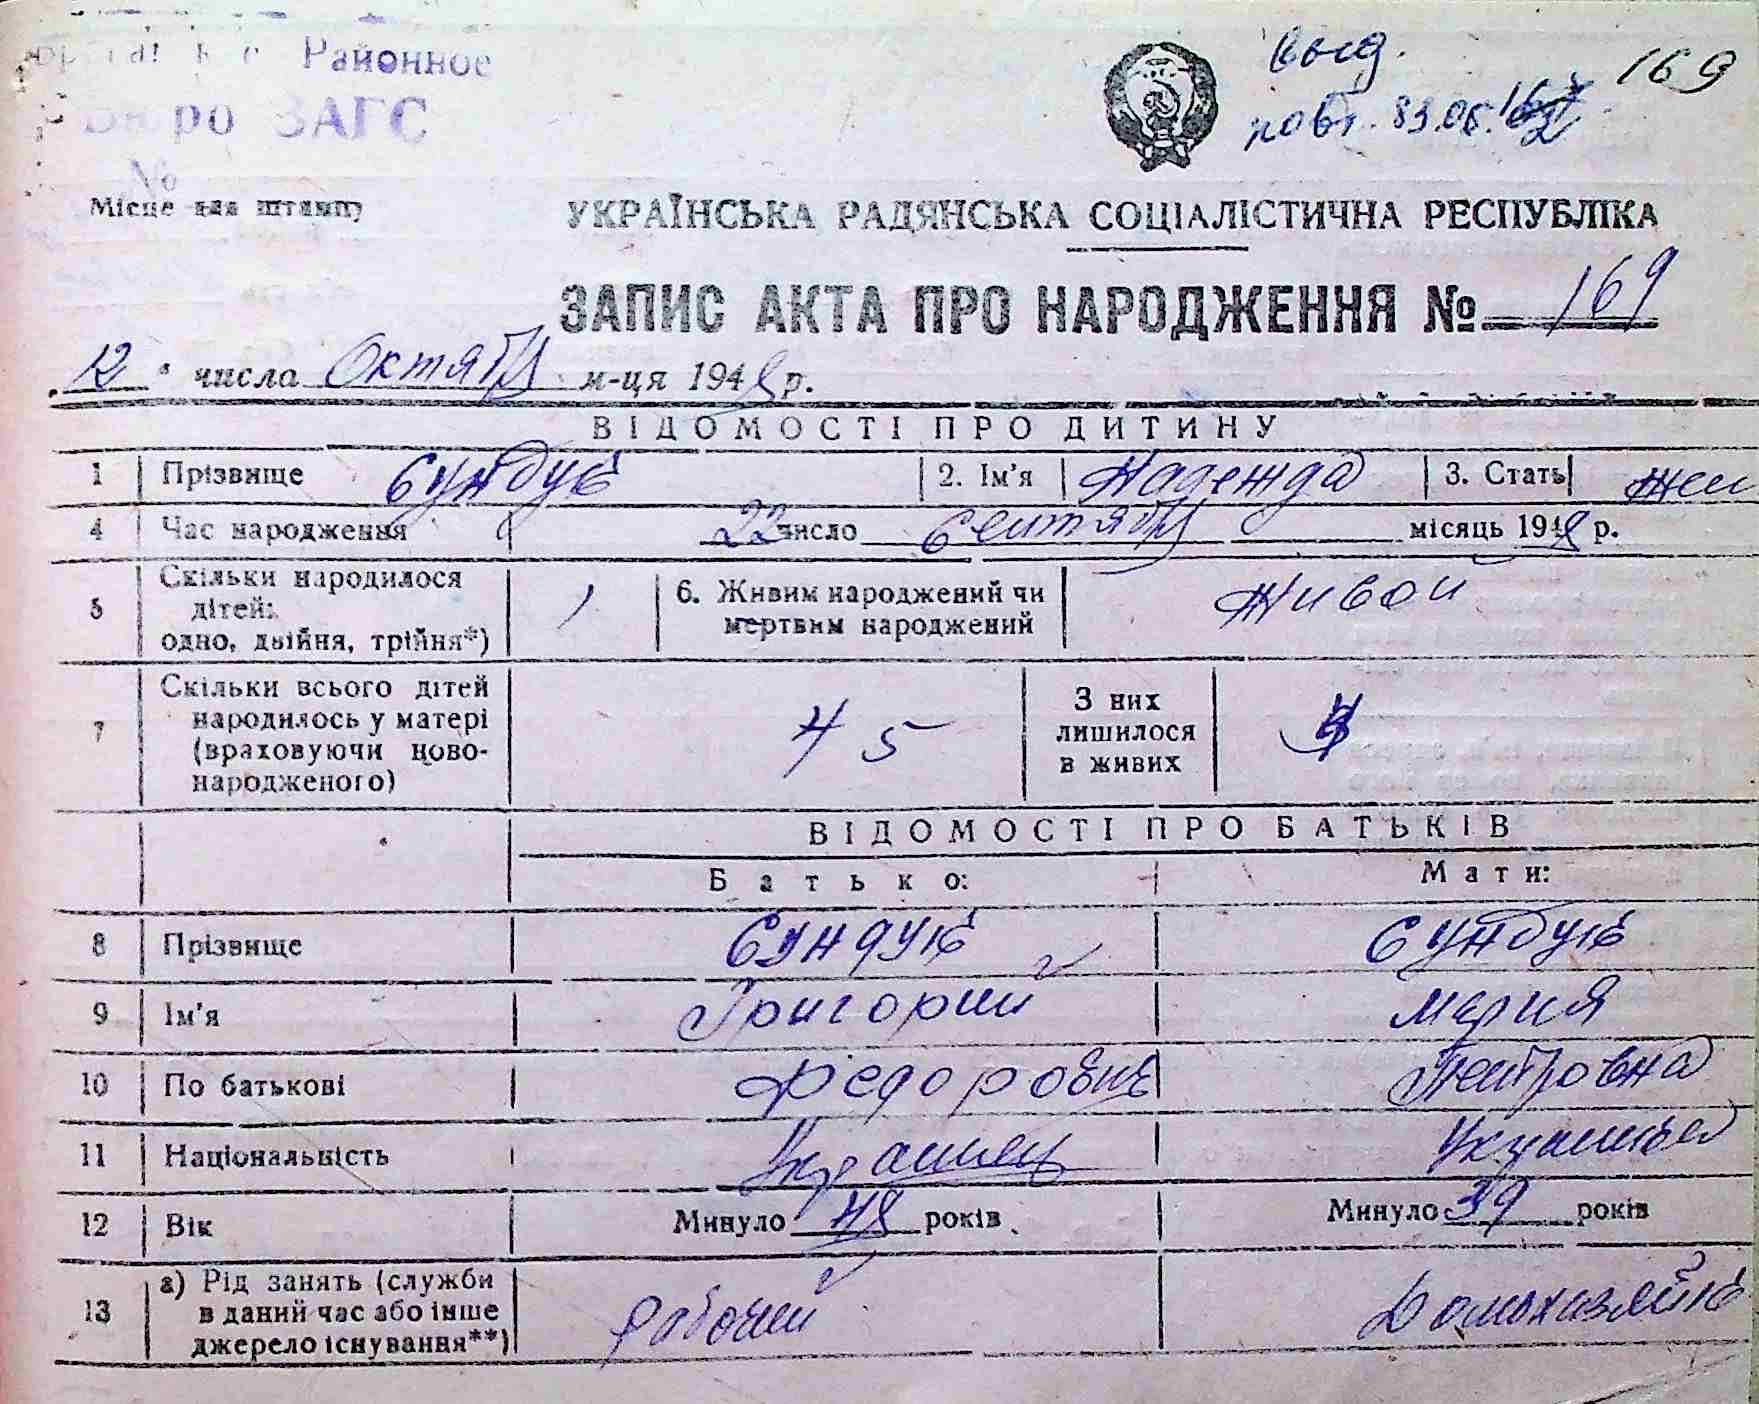 Районное
Бюро ЗАГС
№
выд.
повт. 83.06.
169
Місце для штампу
УКРАЇНСЬКА РАДЯНСЬКА СОЦІАЛІСТИЧНА РЕСПУБЛІКА
ЗАПИС АКТА ПРО НАРОДЖЕННЯ № 169
„12" числа Октября м-ця 1948 р.
ВІДОМОСТІ ПРО ДИТИНУ
1 Прізвище Сундук 2. Ім'я Надежда 3. Стать жен
4 Час народження 22 число Сентября місяць 1948 р.
5 Скільки народилося дітей: одно, двійня, трійня*) 1 6. Живим народжений чи мертвим народжений Живой
7 Скільки всього дітей народилось у матері (враховуючи ново-народженого) 4 5 З них лишилося в живих 4
ВІДОМОСТІ ПРО БАТЬКІВ
Батько: Мати:
8 Прізвище Сундук Сундук
9 Ім'я Григорий Мария
10 По батькові Федорович Петровна
11 Національність Украинец Украинка
12 Вік Минуло 48 років Минуло 39 років
13 а) Рід занять (служби в даний час або інше джерело існування**) рабочий Домохазяйка